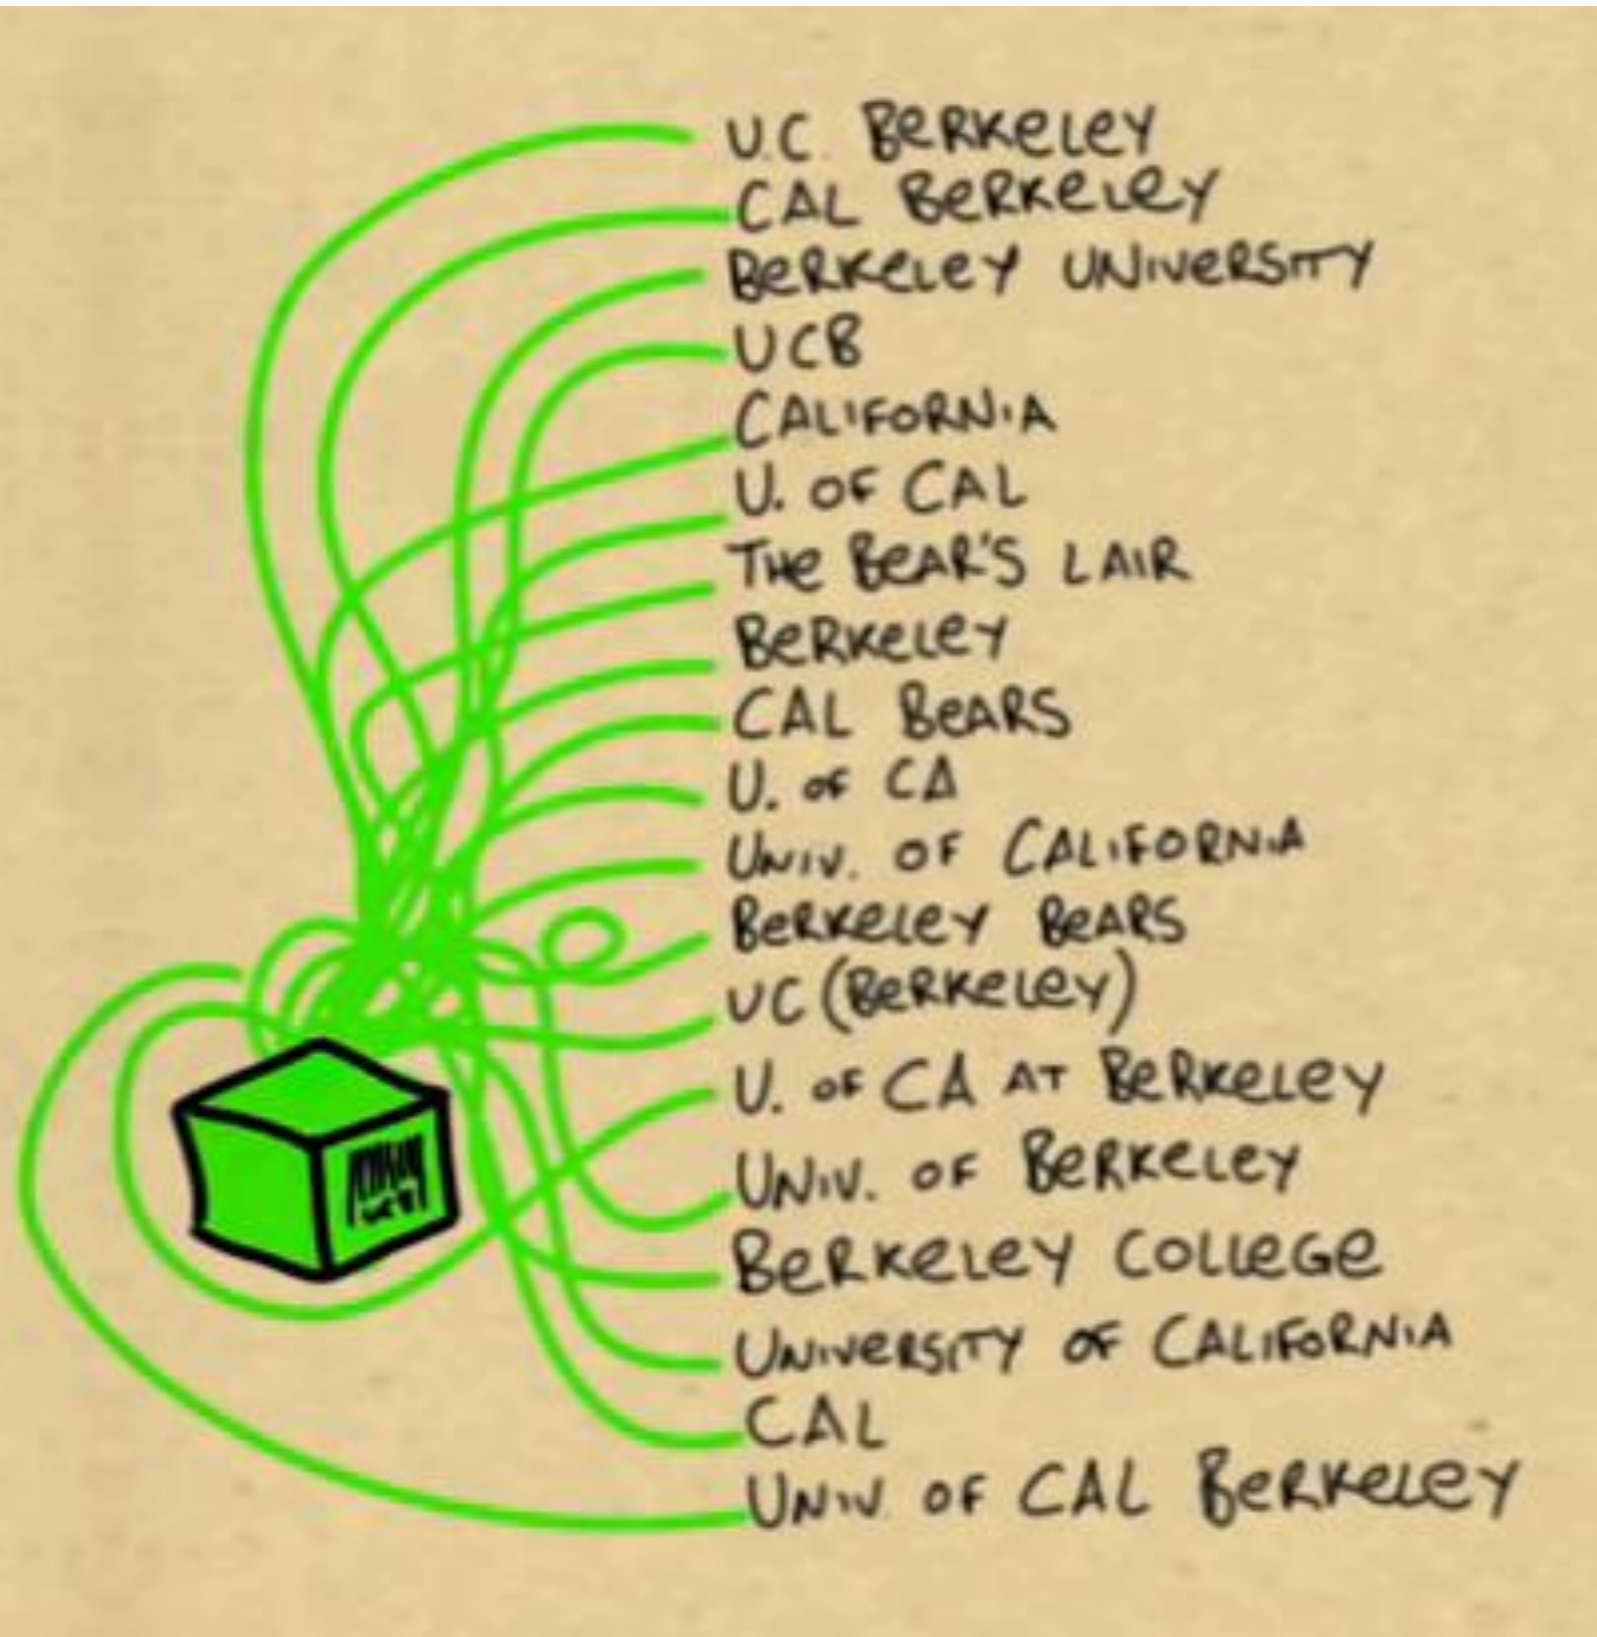 U.C. BERKELEY
CAL BERKELEY
BERKELEY UNIVERSITY
UCB
CALIFORNIA
U. OF CAL
THE BEAR'S LAIR
BERKELEY
CAL BEARS
U. OF CA
UNIV. OF CALIFORNIA
BERKELEY BEARS
UC (BERKELEY)
U. OF CA AT BERKELEY
UNIV. OF BERKELEY
BERKELEY COLLEGE
UNIVERSITY OF CALIFORNIA
CAL
UNIV. OF CAL BERKELEY